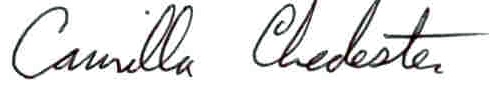 Camilla Chedester